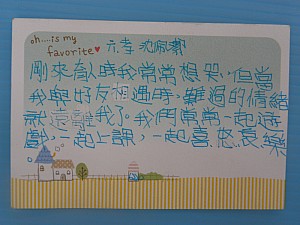 oh....is my
favorite♥ 六孝 沈佩霽
剛來育人時我常常想哭,但當
我與好友相遇時,難過的情緒
就遠離我了。我們常常一起遊
戲,一起上課,一起喜怒哀樂